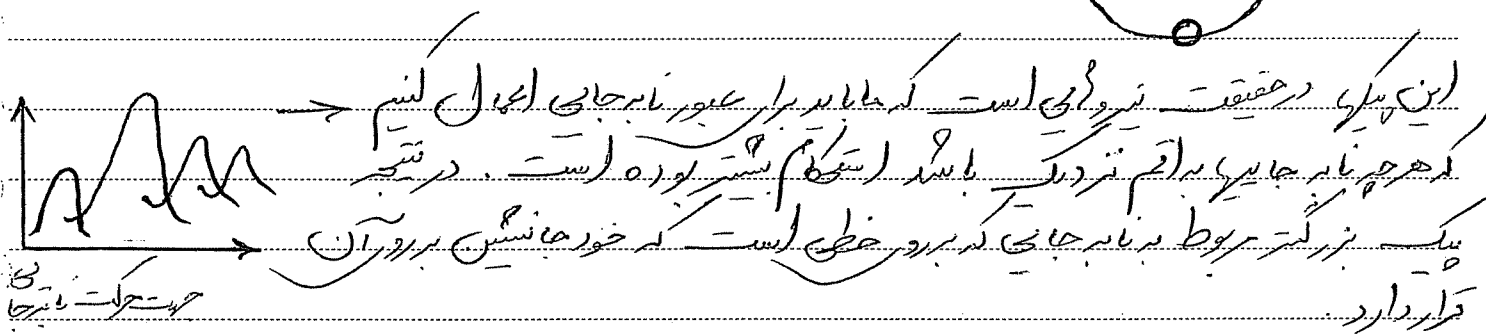 این پیکها در حقیقت نیروهایی است که ما باید برای عبور نابه جایی اعمال کنیم
که هر چه نابه جاییها به اتم نزدیک باشد استحکام بیشتر بوده است . در نتیجه
پیک بزرگتر مربوط به نابه جایی که بر روی خطی است که خود جانشین بر روی آن
قرار دارد.
جهت حرکت نابه جایی